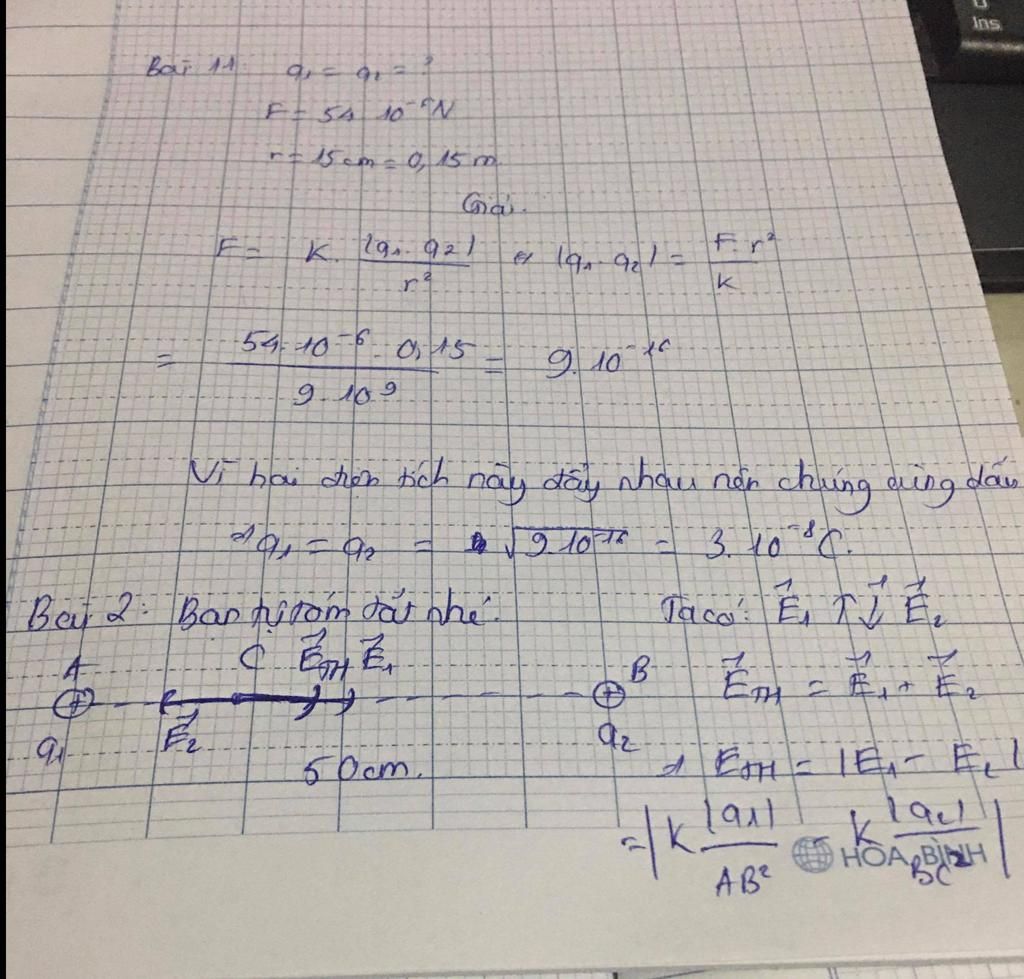 Ins
Bài 11: q₁ = q₂ = ?
F = 54 10⁻⁶N
r = 15cm = 0,15m.
Giải.
F = K. |q₁.q₂| / r² ⇔ |q₁.q₂| = F.r² / k
= 54.10⁻⁶.0,15 / 9.10⁹ = 9.10⁻¹⁶
Vì hai điện tích này đẩy nhau nên chúng cùng dấu
⇒ q₁ = q₂ = √9.10⁻¹⁶ = 3.10⁻⁸C.
Bài 2: Bạn tự tóm tắt nhé. Ta có: E⃗₁ ↑↓ E⃗₂
A C E⃗TH E⃗₁ B E⃗TH = E⃗₁ + E⃗₂
q₁ E⃗₂ q₂
50cm. ⇒ ETH = |E₁ - E₂|
= |K |q₁| / AB² - k |q₂| / BC²|
HÒA BÌNH